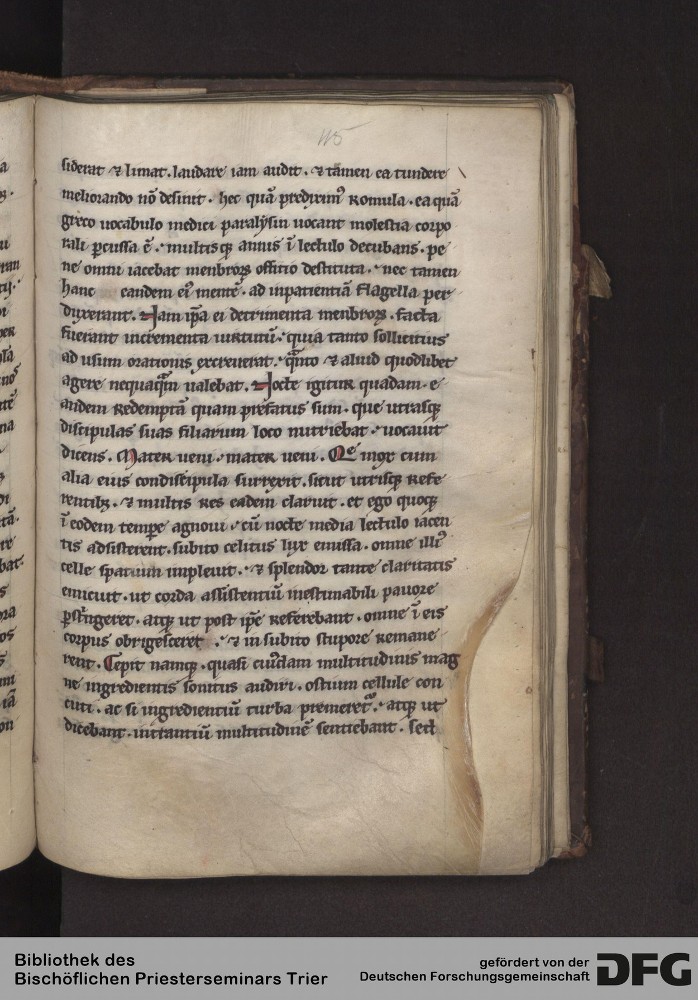 115
siderat ⁊ limat. laudare iam audit. ⁊ tam̄en ea tundere
meliorando nō desinit. hec quā predixim⁹ Romula. ea quā
greco uocabulo medici paralysin uocant molestia corpo
rali ꝑcussa ē. multisqꝫ annis ī lectulo decubans. pe
ne omni iacebat menbroꝝ offitio destituta. nec tamen
hanc eandem ei⁹ mentē. ad inpatientiā flagella per
duxerant. Nam ip̄a ei detrimenta menbroꝝ. facta
fuerant incrementa uirtutū. quia tanto sollicitius
ad usum orationis excreuerat. q̄nto ⁊ aliud quodlibet
agere nequaq̄m ualebat. Nocte igitur quadam. e
andem Redemptā quam prefatus sum. que utrasqꝫ
discipulas suas filiarum loco nutriebat. uocauit
dicens. Mater ueni. mater ueni. Que mox cum
alia eius condiscipula surrexit. sicut utrisqꝫ refe
rentibꝫ. ⁊ multis res eadem claruit. et ego quoqꝫ
ī eodem tempore agnoui. cū nocte media lectulo iacen
tis adsisterent. subito celitus lux emissa. omne illi⁹
celle spatium impleuit. ⁊ splendor tante claritatis
emicuit. ut corda assistentiū inestimabili pauore
ꝑstringeret. atqꝫ ut post ip̄e referebant. omne ī eis
corpus obrigesceret. ⁊ in subito stupore remane
rent. Cepit namqꝫ. quasi cuiusdam multitudinis mag
ne ingredientis sonitus audiri. ostium cellule con
cuti. ac si ingredientiū turba premeret᷑. atqꝫ ut
dicebant. intrantiū multitudinē sentiebant. sed
Bibliothek des
Bischöflichen Priesterseminars Trier
gefördert von der
Deutschen Forschungsgemeinschaft
DFG